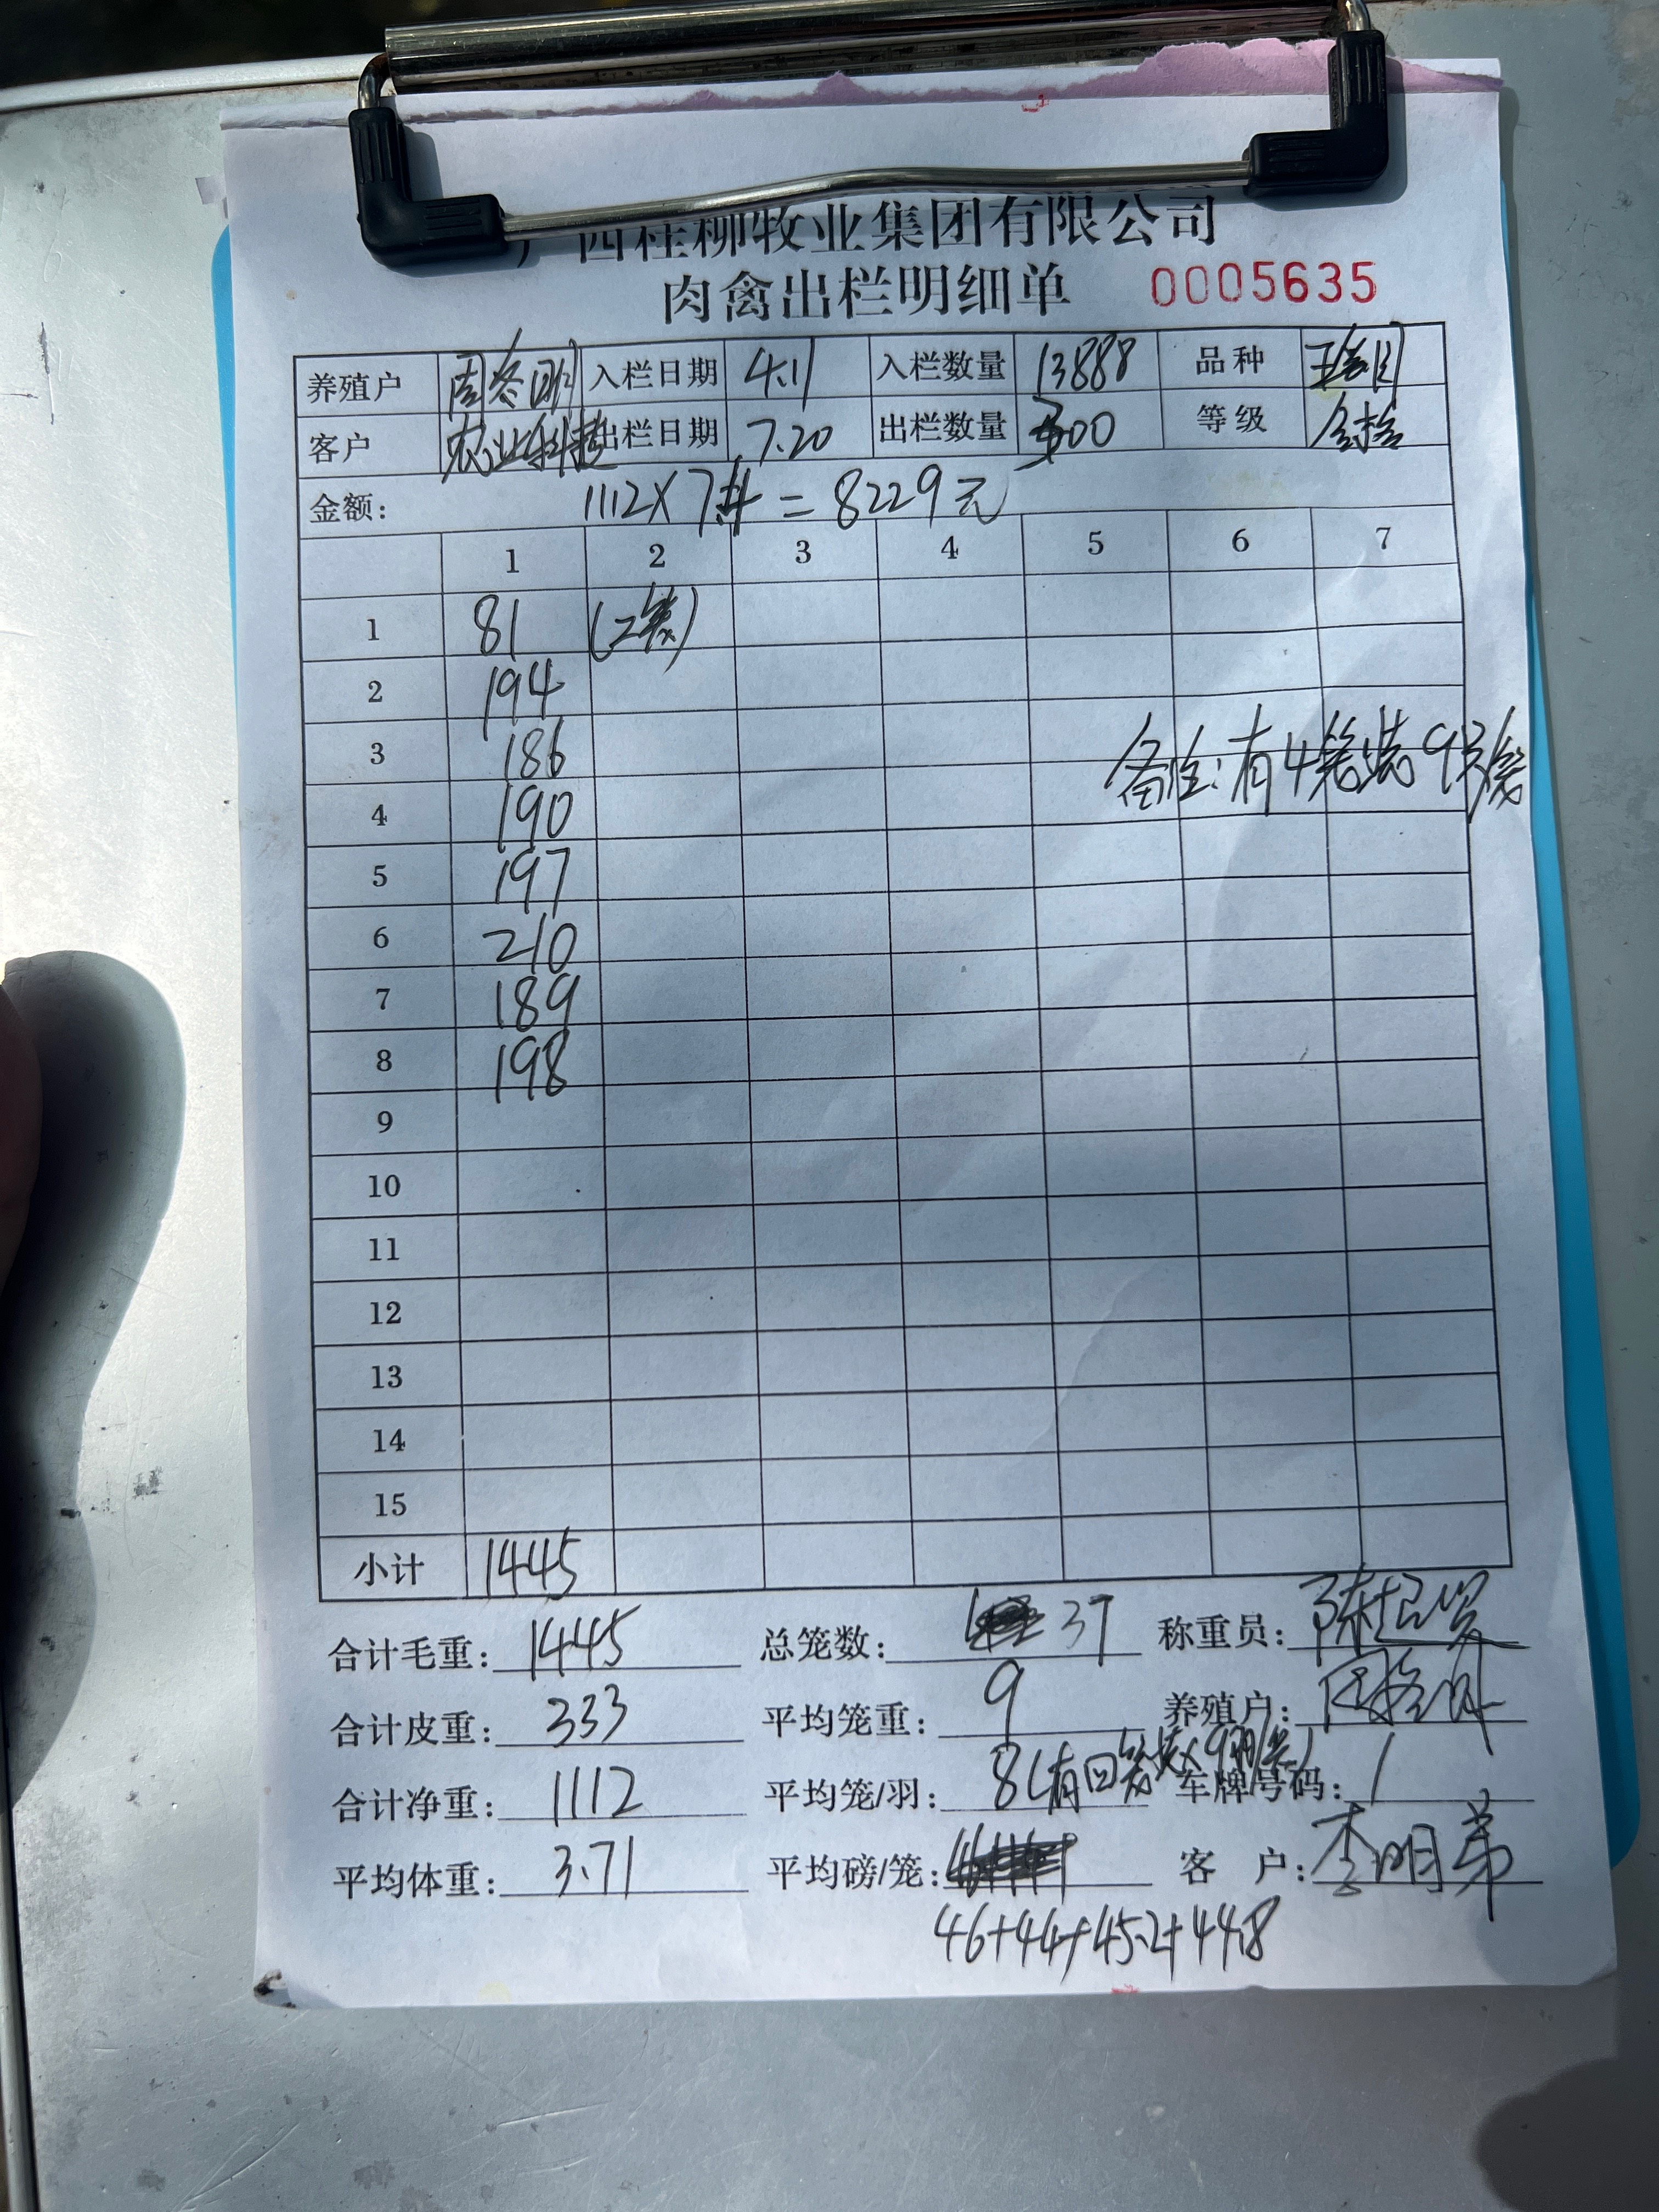 广西桂柳牧业集团有限公司
肉禽出栏明细单 0005635
养殖户 周冬明 入栏日期 4.11 入栏数量 13888 品种
客户 农业科技 出栏日期 7.20 出栏数量 300 等级 合格
金额: 1112X7.4=8229元
1 2 3 4 5 6 7
1 81 (2笼)
2 194
3 186
4 190
5 197
6 210
7 189
8 198
9
10
11
12
13
14
15
小计 1445
备注:有4笼装9只/笼
合计毛重: 1445 总笼数: 37 称重员:
合计皮重: 333 平均笼重: 9 养殖户: 周冬明
合计净重: 1112 平均笼/羽: 8(有四笼装9羽/笼) 车牌号码: /
平均体重: 3.71 平均磅/笼: 客 户: 李明弟
46+44+45.2+44.8